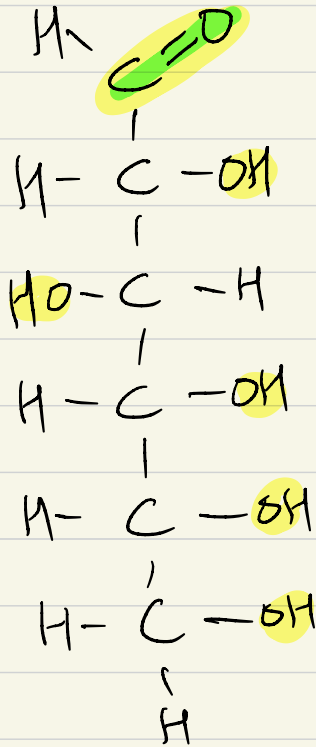 H C=O
H-C-OH
HO-C-H
H-C-OH
H-C-OH
H-C-OH
H